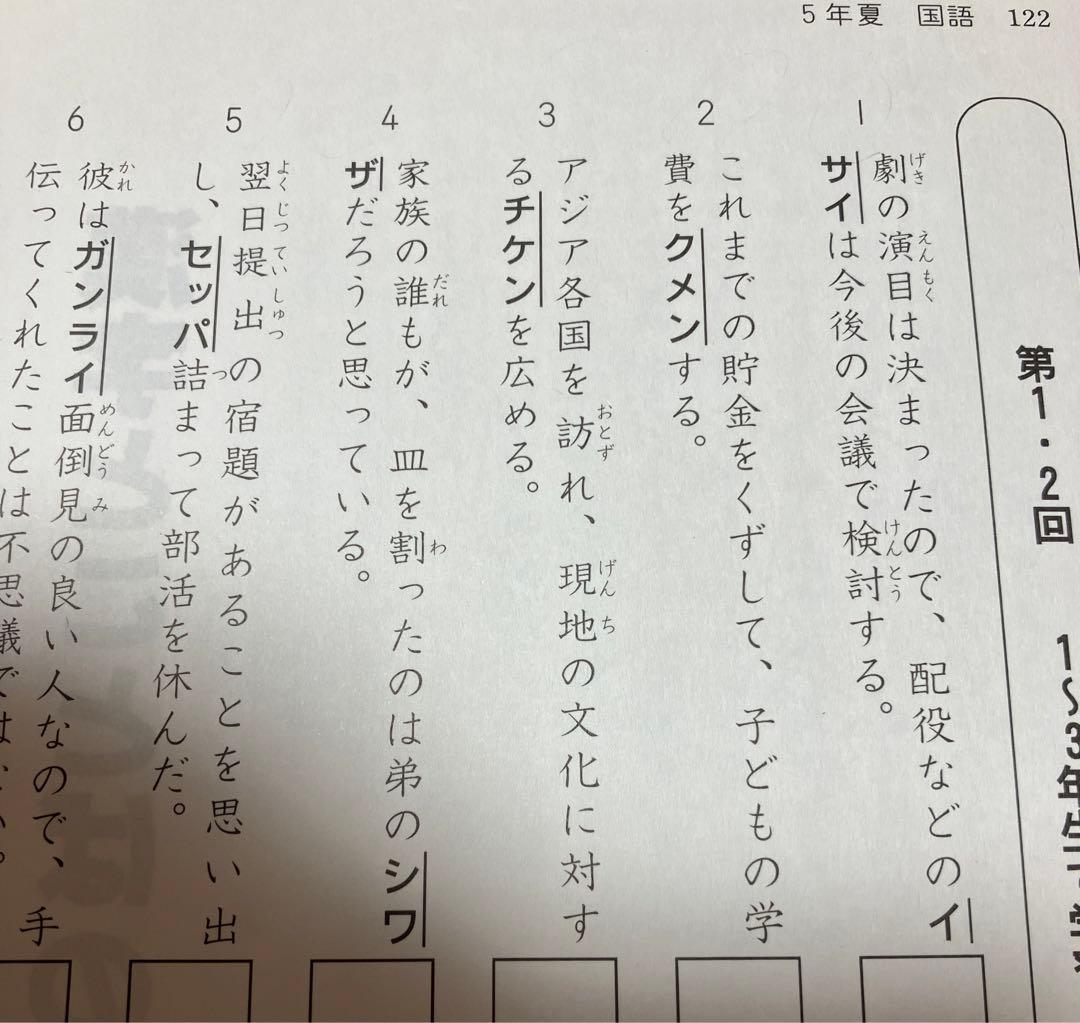 5年夏 国語 122
第1・2回 1〜3年生で学
1
劇の演目は決まったので、配役などのイ
サイは今後の会議で検討する。
2
これまでの貯金をくずして、子どもの学
費をクメンする。
3
アジア各国を訪れ、現地の文化に対す
るチケンを広める。
4
家族の誰もが、皿を割ったのは弟のシワ
ザだろうと思っている。
5
翌日提出の宿題があることを思い出
し、セッパ詰まって部活を休んだ。
6
彼はガンライ面倒見の良い人なので、手
伝ってくれたことは不思議ではない。